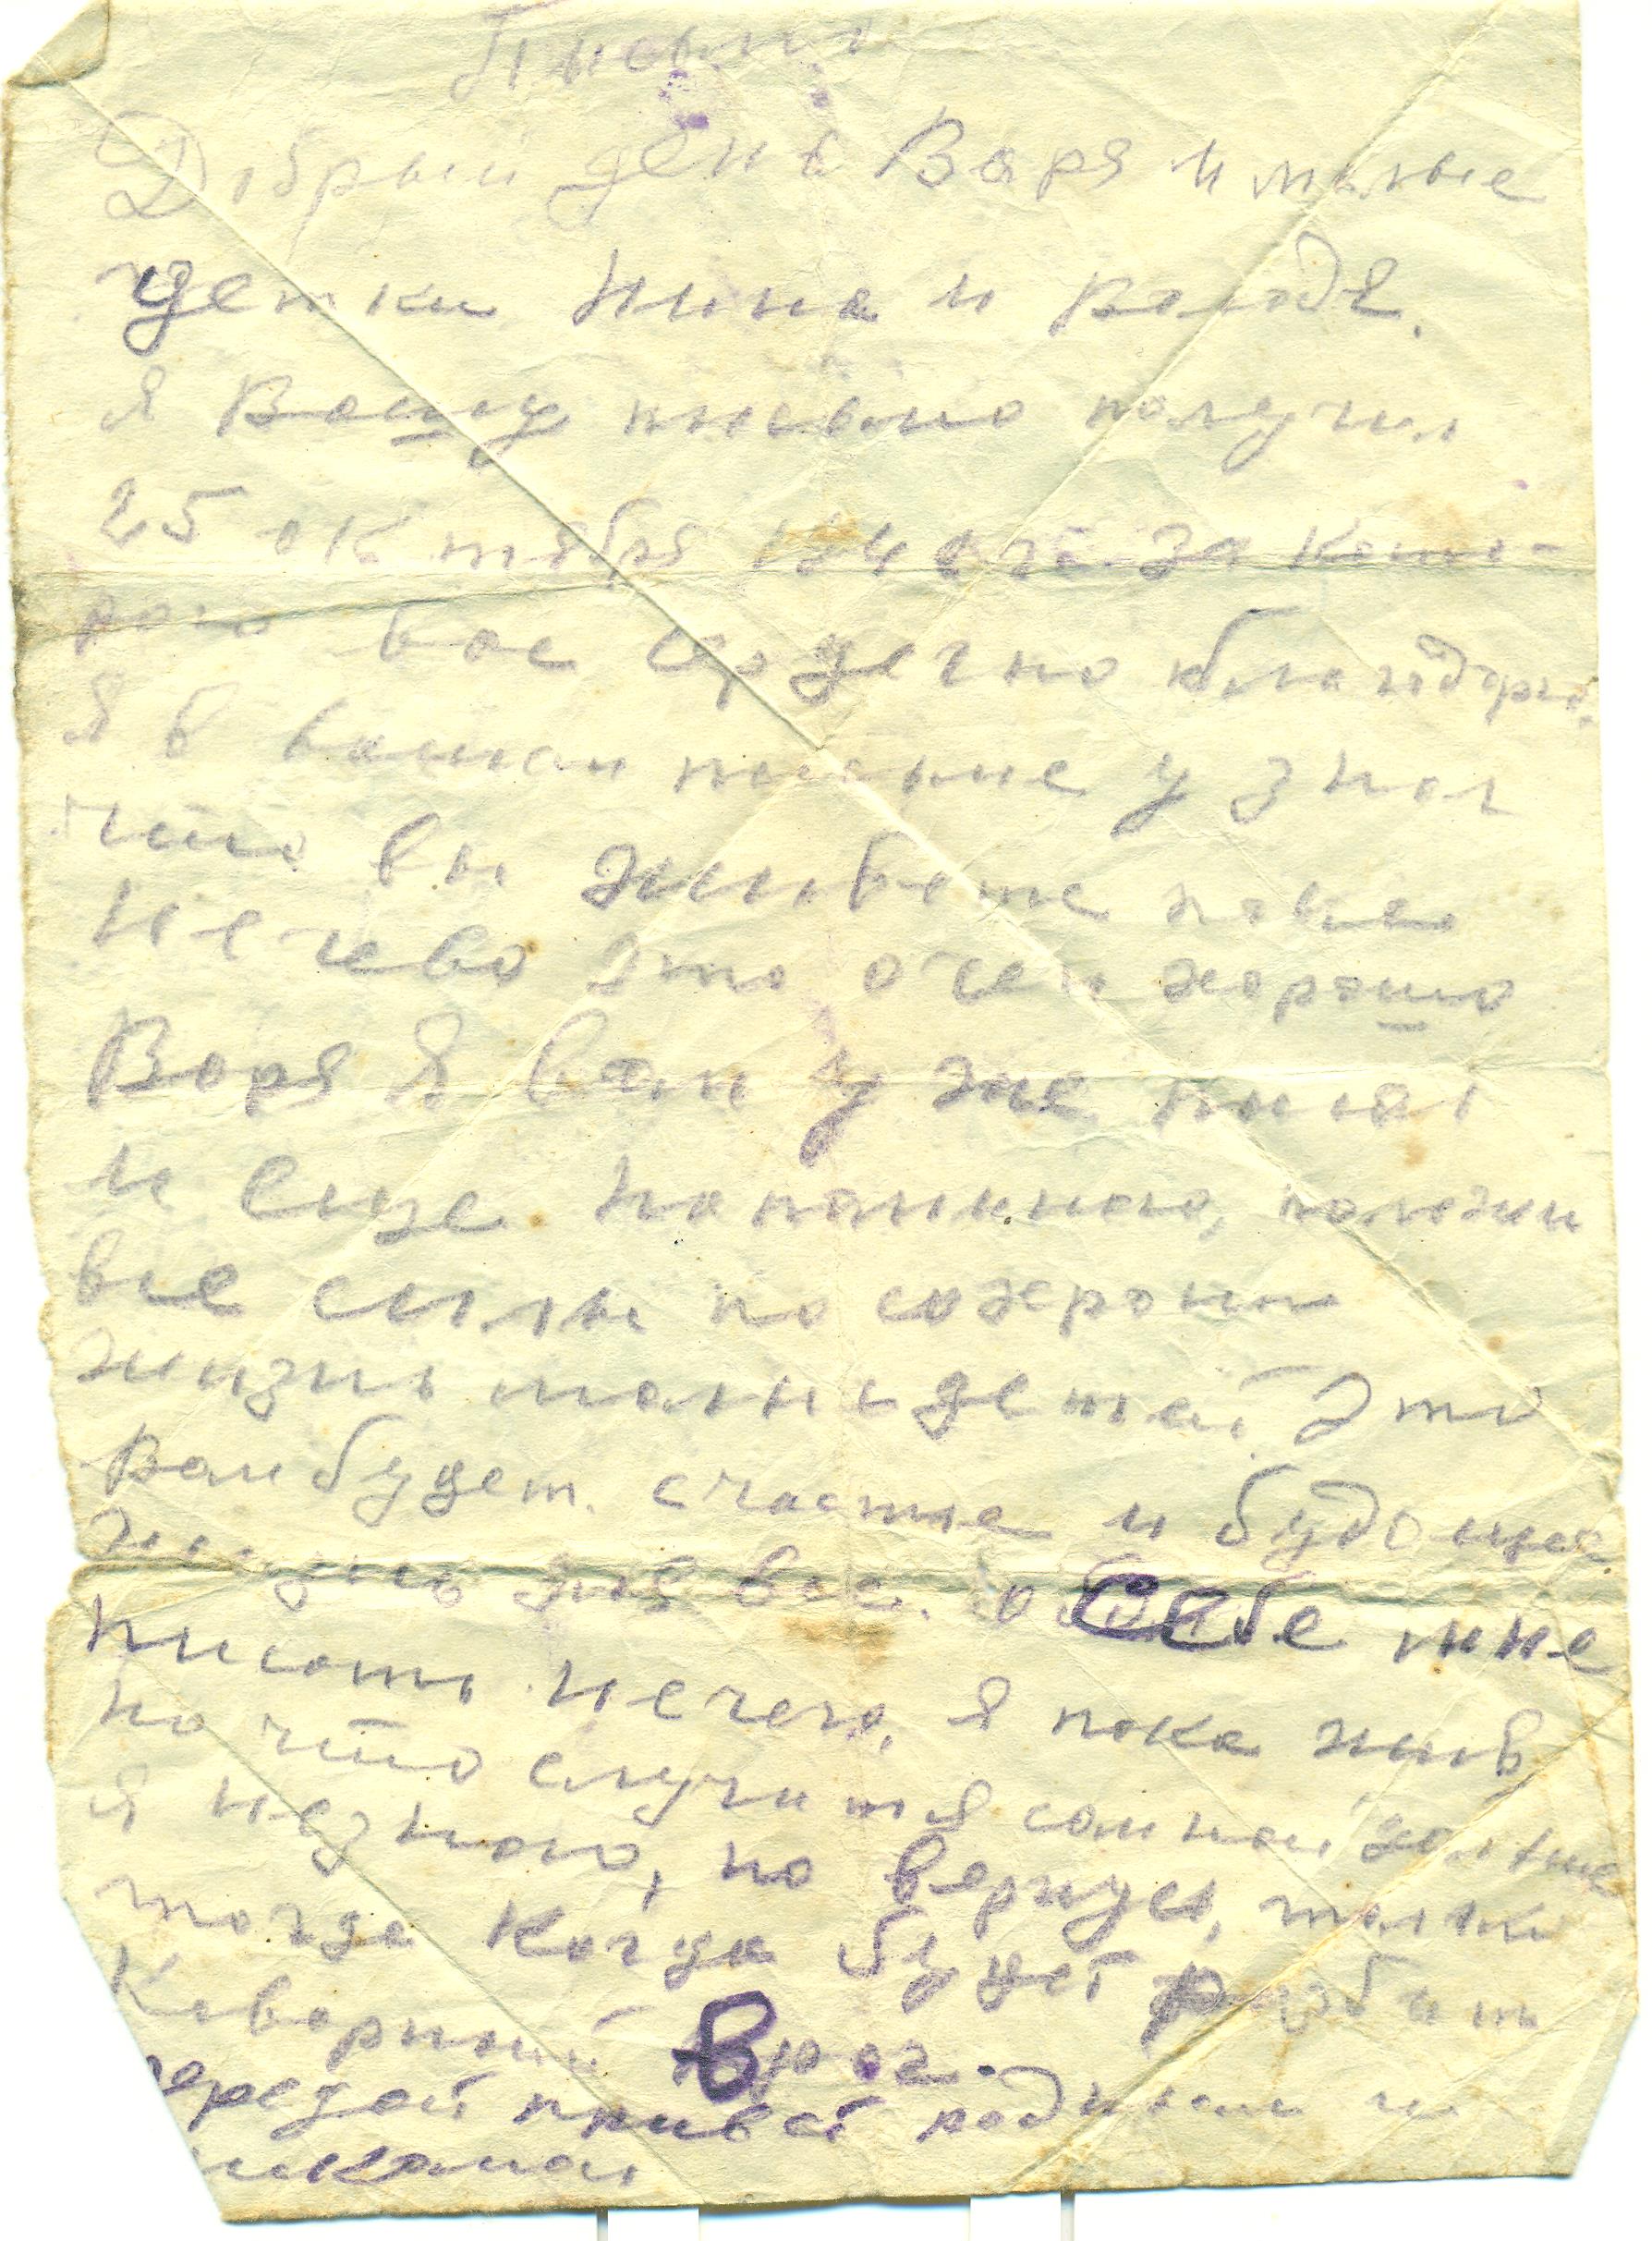 Письмо
Добрый день Варя и милые
детки Нина и Володя.
Я Вашу письмо получил
25 октября 194 за кото-
рого вас сердечно благодарю.
Я в вашем письме узнал
что вы живете пока
Нечево это очен хорошо
Варя Я вам уже писал
и еще напоминаю, положи
все силы но сохрони
жизнь моих детей. Это
Вам будет счастие и будощие
жизнь для вас. о Себе мне
писать нечего, я пока жив
но что случится сомной дольше
я незнаю, но вернусь, только
тогда когда будет разбит
Коворный Враг.
передай привет родным и
знакомым